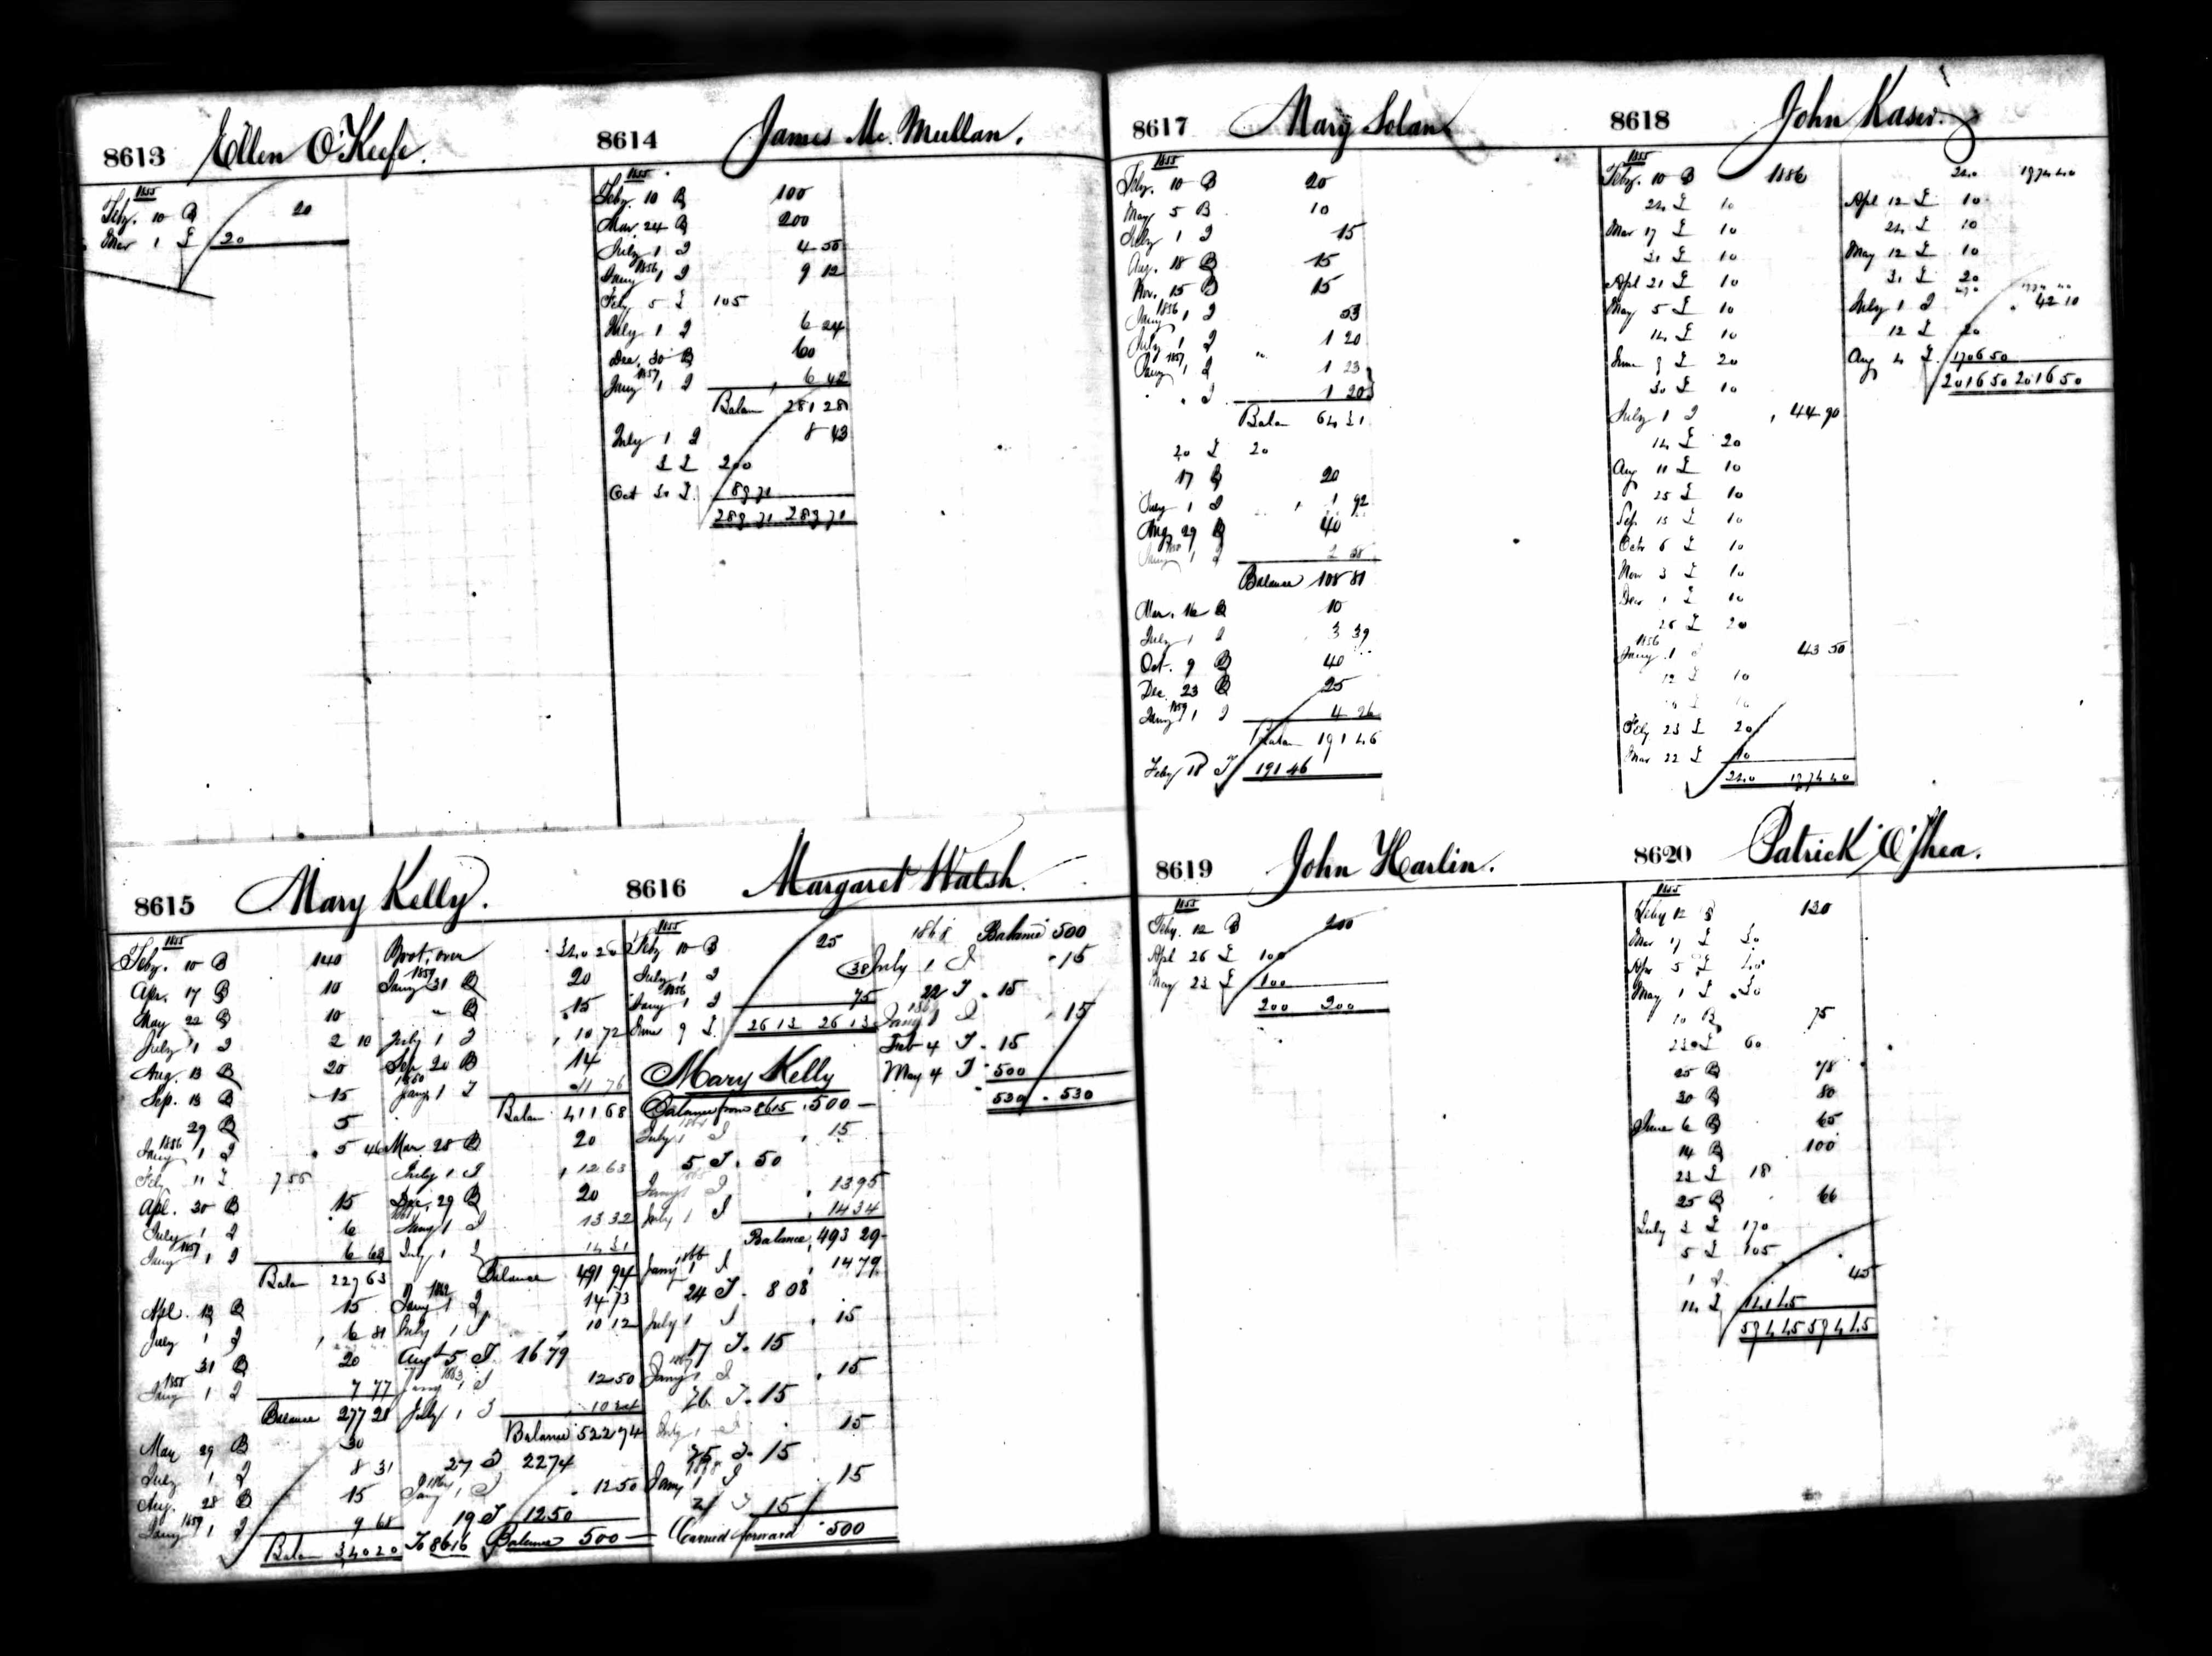 8613 Ellen O'Keefe.
1855
Feby. 10 B 20
Mar 1 £ 20
8614 James Mc. Mullan.
1855
Feby. 10 B 100
Mar. 24 B 200
July 1 I 4 50
1856
Jany 1 I 9 12
Feby 5 £ 105
July 1 I 6 24
Dec. 30 B 60
1857
Jany 1 I 6 42
Balan 281 28
July 1 I 8 43
3 £ 200
Oct 30 £ 89 71
289 71 289 71
8615 Mary Kelly.
1855
Feby. 10 B 140
Apr. 17 B 10
May 22 B 10
July 1 I 2 10
Aug. 13 B 20
Sep. 13 B 15
29 B 5
1856
Jany 1 I 5 46
Feby 11 £ 7 55
Apl. 30 B 15
July 1 I 6
1857
Jany 1 I 6 63
Balan 227 63
Apl. 13 B 15
July 1 I 6 81
31 B 20
1858
Jany 1 I 7 77
Balance 277 21
May 29 B 30
July 1 I 8 31
Aug. 28 B 15
1859
Jany 1 I 9 68
Balan 340 20
Brot. over 340 20
1859
Jany 31 B 20
" B 15
July 1 I 10 72
Sep 20 B 14
1860
Jany 1 I 11 76
Balan 411 68
Mar. 28 B 20
July 1 I 12 63
Dec. 29 B 20
1861
Jany 1 I 13 32
July 1 I 14 31
Balance 491 94
1862
Jany 1 I 14 73
July 1 I 10 12
Augt 5 T 16 79
1863
Jany 1 I 12 50
July 1 I
Balance 522 74
27 T 22 74
1864
Jany 1 I 12 50
19 T 12 50
To 8616 Balance 500 —
8616 Margaret Walsh.
1855
Feby 10 B 25
July 1 I 38
1856
Jany 1 I 75
June 9 £ 26 13 26 13
Mary Kelly
Balance from 8615 500 —
1864
July 1 I 15
5 T. 50
1865
Jany 1 I 13 95
July 1 I 14 34
Balance 493 29
1866
Jany 1 I 14 79
24 T. 8 08
July 1 I 15
17 T. 15
1867
Jany 1 I 15
26 T. 15
July 1 I 15
25 T. 15
1868
Jany 1 I 15
21 T 15
Carried forward 500
1868 Balance 500
July 1 I 15
22 T. 15
1869
Jany 1 I 15
Feb 4 T. 15
May 4 T 500
530 . 530
8617 Mary Solan
1855
Feby. 10 B 20
May 5 B 10
July 1 I 15
Aug. 18 B 15
Nov. 15 B 15
1856
Jany 1 I 53
July 1 I 1 20
1857
Jany 1 I 1 23
" I 1 20
Balan 64 31
20 £ 20
17 B 20
July 1 I 1 92
Aug 29 B 40
1858
Jany 1 I 2 58
Balance 108 81
Mar. 16 B 10
July 1 I 3 39
Oct. 9 B 40
Dec. 23 B 25
1859
Jany 1 I 4 26
Balan 191 46
Feby 18 T 191 46
8618 John Kaser.
1855
Feby. 10 B 1886
24 £ 10
Mar 17 £ 10
31 £ 10
Apl 21 £ 10
May 5 £ 10
14 £ 10
June 9 £ 20
30 £ 10
July 1 I 44 90
14 £ 20
Aug 11 £ 10
25 £ 10
Sep. 15 £ 10
Octr 6 £ 10
Nov 3 £ 10
Decr 1 £ 10
26 £ 20
1856
Jany 1 I 43 50
12 £ 10
Feby 23 £ 20
Mar 22 £ 10
240 1974 40
240 1974 40
Apl 12 £ 10
24 £ 10
May 12 £ 10
31 £ 20
July 1 I 42 10
12 £ 20
Aug 4 £ 1706 50
2016 50 2016 50
8619 John Harlin.
1855
Feby. 12 B 200
Apl 26 £ 100
May 23 £ 100
200 200
8620 Patrick O'Shea.
1855
Feby 12 B 130
Mar 17 £ 30
Apr 5 £ 40
May 1 £ 30
10 B 75
23 £ 60
25 B 78
30 B 80
June 6 B 65
14 B 100
23 £ 18
25 B 66
July 3 £ 170
5 £ 105
1 I 45
14 £ 141 45
594 45 594 45